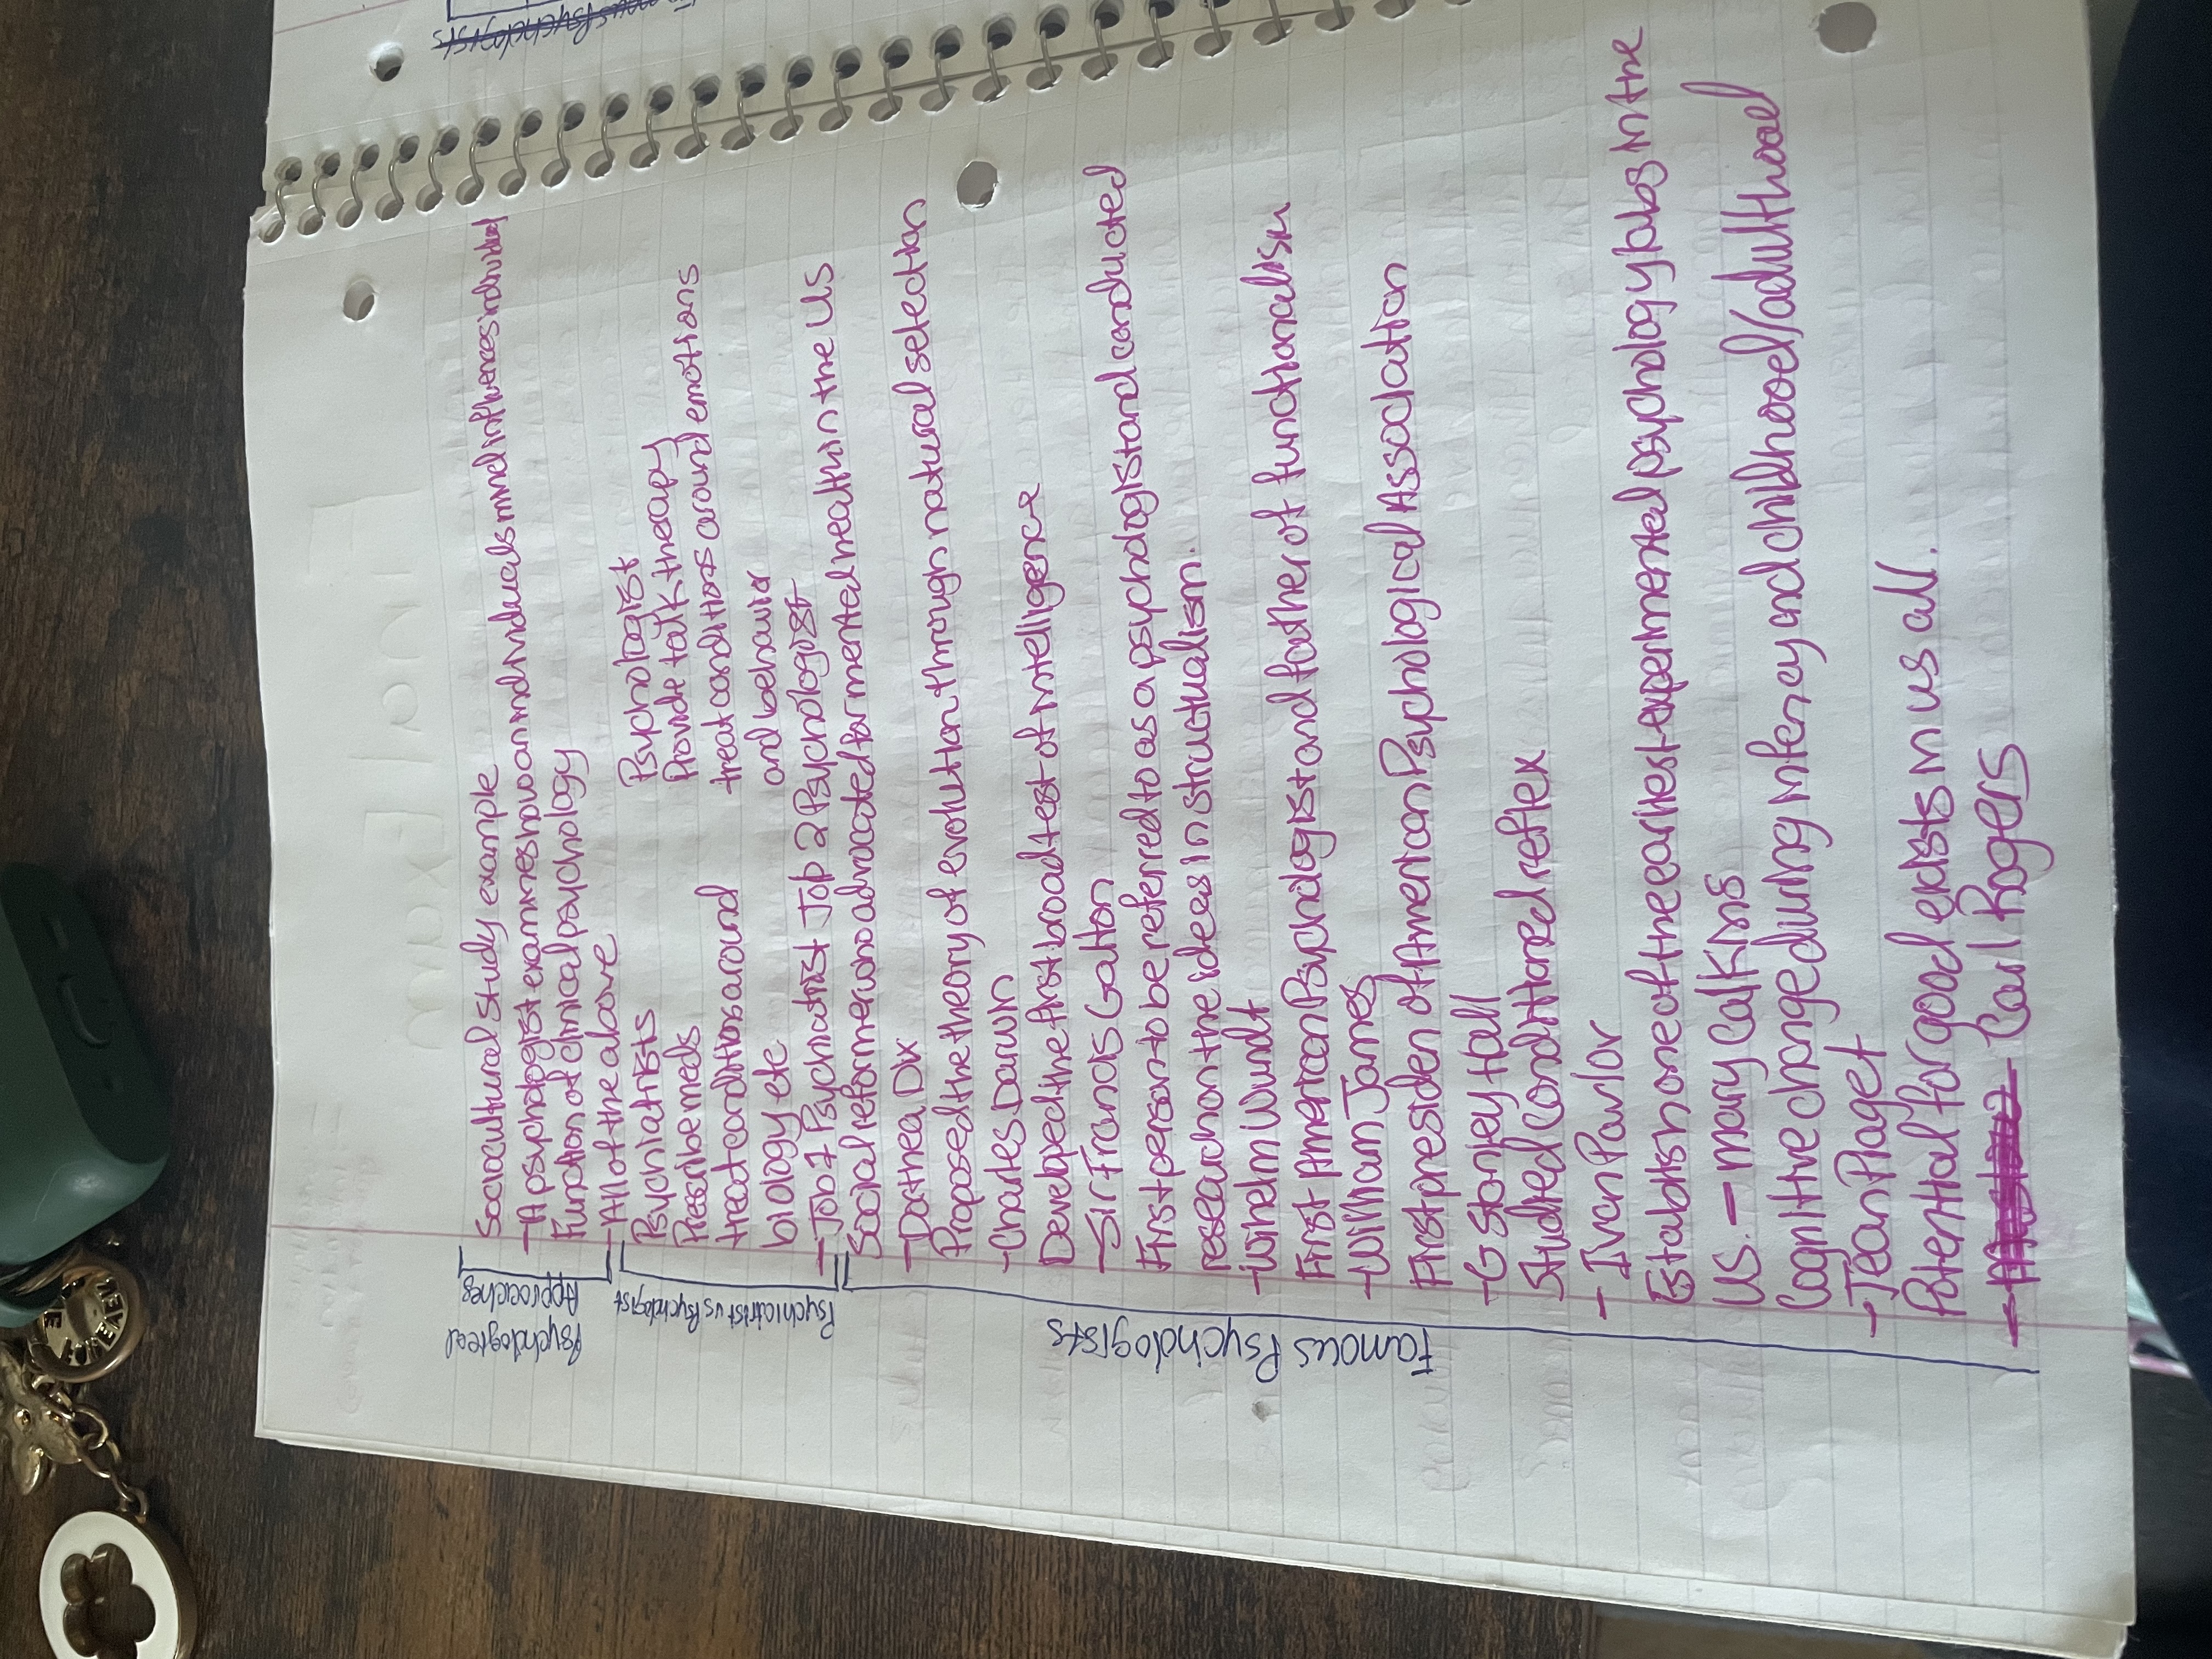 Final Exam
Psychological
Approaches
Sociocultural study example
- A psychologist examines how an individuals mind influences individual
Function of clinical psychology
- All of the above
Psychiatrist vs Psychologist
Psychiatrists
Prescribe meds
treat conditions around
biology etc
Psychologist
Provide talk therapy
treat conditions around emotions
and behavior
- Job 1 Psychiatrist Job 2 Psychologist
Famous Psychologists
Social reformer who advocated for mental health in the US
- Dorthea Dix
Proposed the theory of evolution through natural selection
- Charles Darwin
Developed the first broad test of intelligence
- Sir Francis Galton
First person to be referred to as a psychologist and conducted
research on the ideas in structualism.
- Wihelm Wundt
First American Psychologist and father of functionalism
- William James
First presiden of American Psychological Association
- G Stanley Hall
Studied conditioned reflex
- Ivan Pavlov
Establish one of the earliest experimental psychology labs in the
US. - mary Calkins
Cognitive change during infancy and childhood/adulthood
- Jean Piaget
Potential for good exists in us all.
- Maslow Carl Rogers